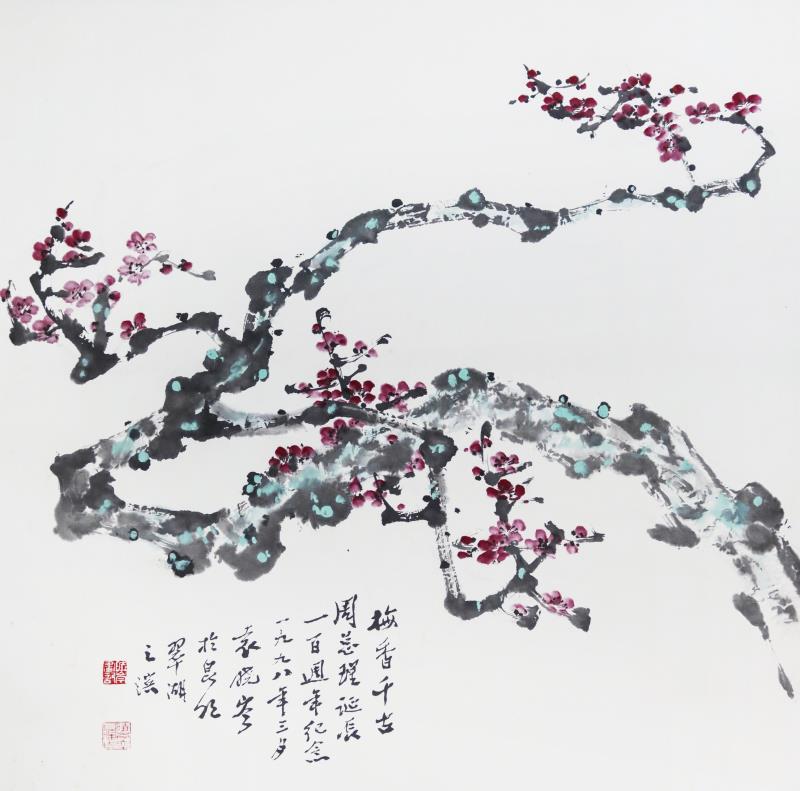 梅香千古
周总理诞辰
一百週年纪念
一九九八年三月
袁晓岑
於昆明
翠湖
之滨